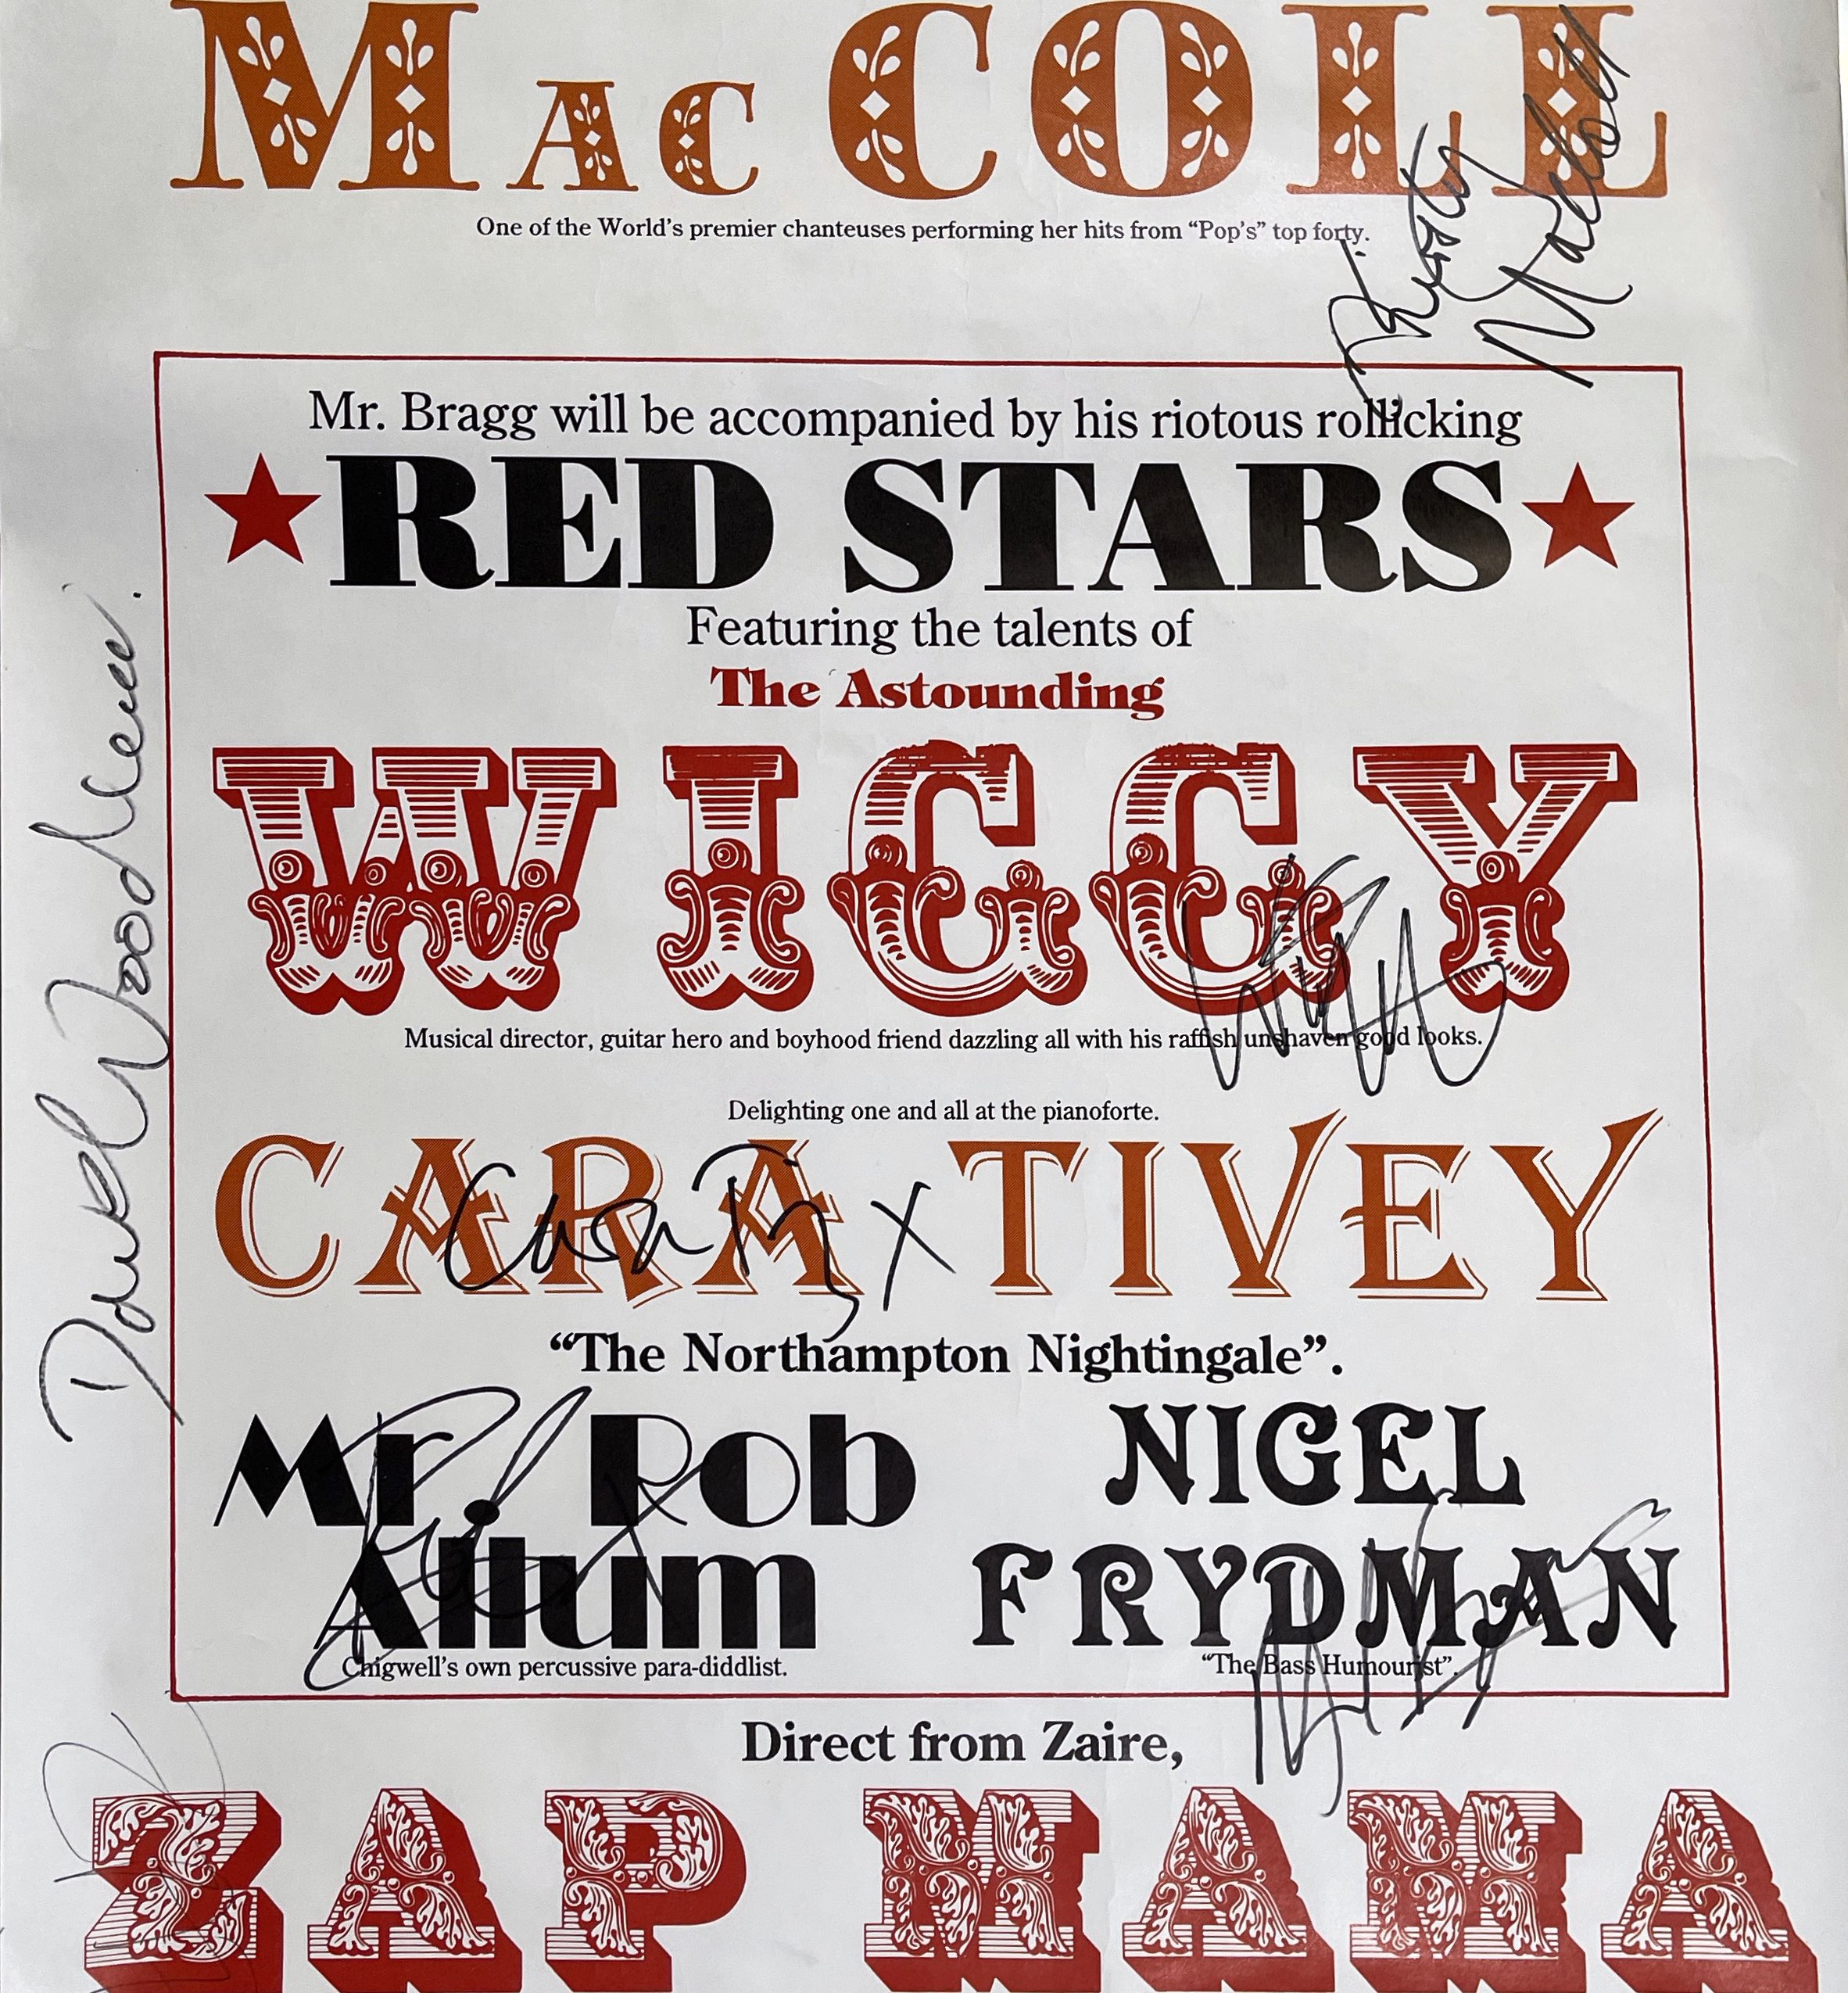 Mac COLL
One of the World's premier chanteuses performing her hits from “Pop's” top forty.
Kirsty
MacColl
Mr. Bragg will be accompanied by his riotous rollicking
RED STARS
Featuring the talents of
The Astounding
WIGGY
Wiggy
Musical director, guitar hero and boyhood friend dazzling all with his raffish unshaven good looks.
Delighting one and all at the pianoforte.
CARA TIVEY
Cara Tivey x
“The Northampton Nightingale”.
Mr. Rob
Allum
Chigwell's own percussive para-diddlist.
NIGEL
FRYDMAN
“The Bass Humourist”.
Direct from Zaire,
ZAP MAMA